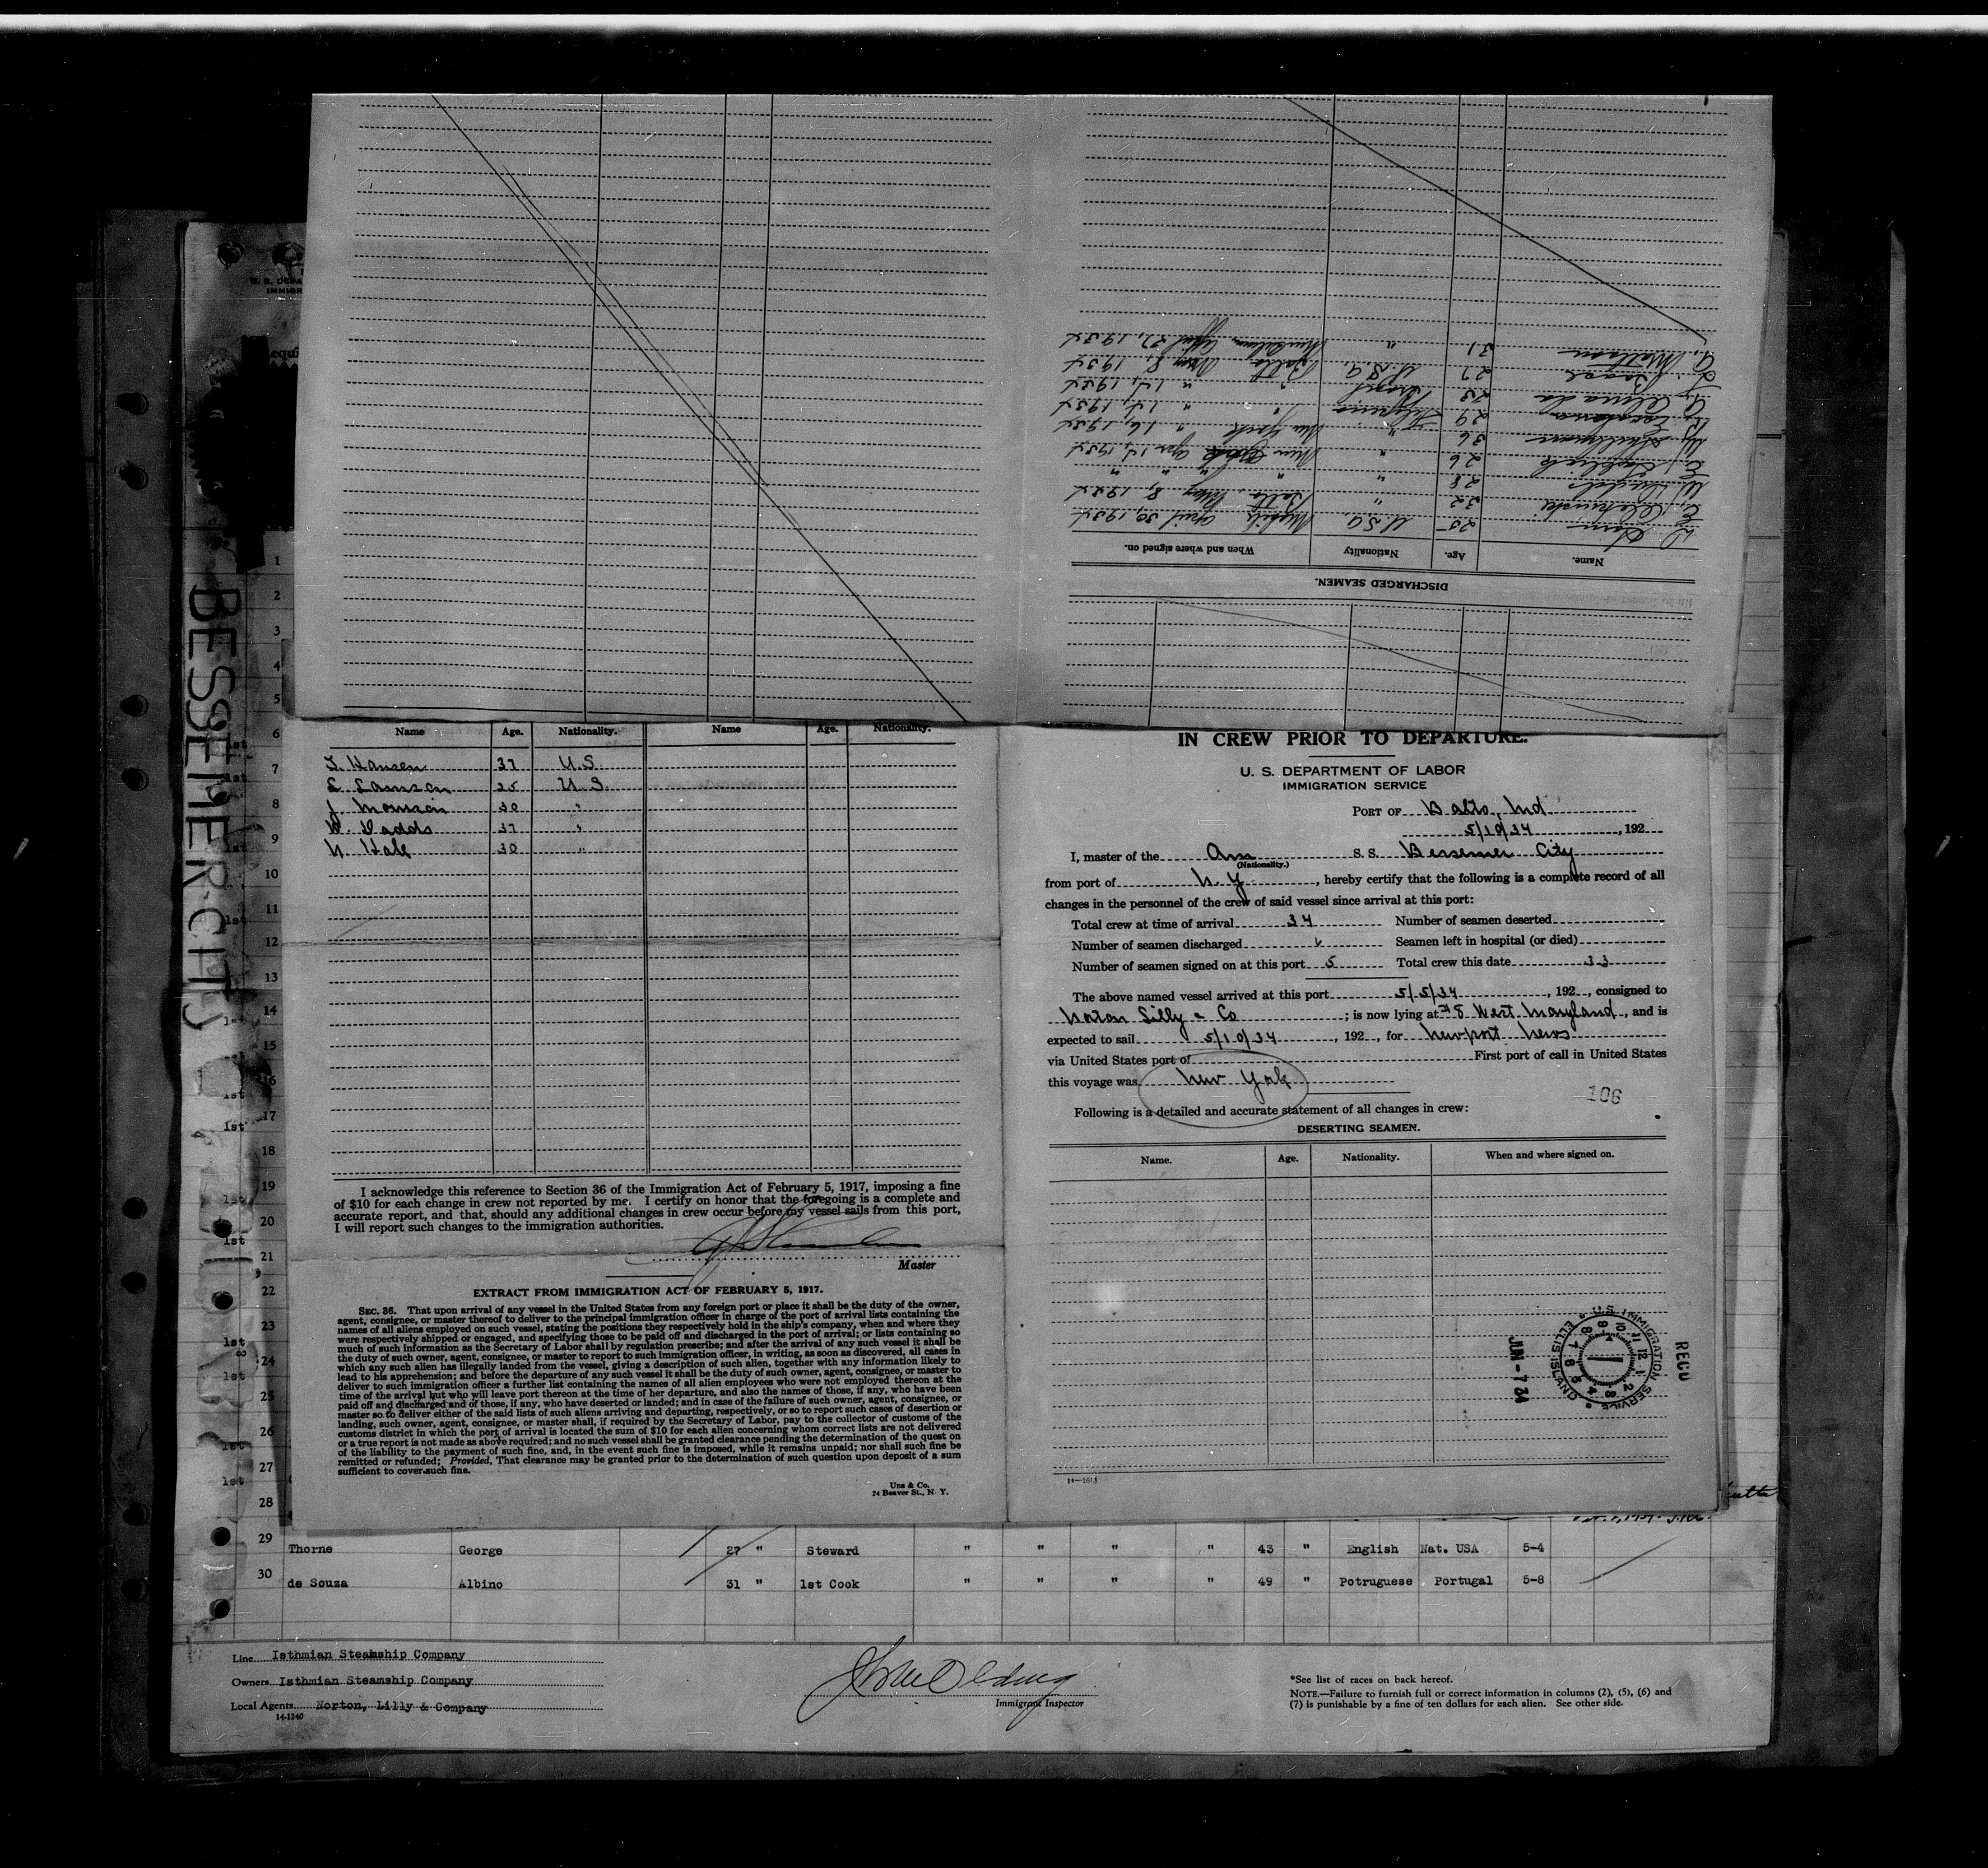 DISCHARGED SEAMEN.
Name. Age. Nationality When and where signed on.
25 U.S.A. Mobile April 30, 1934
E. 32 " Balto. May 8, 1934
W. 28 " " " "
E. 26 " Apr 14, 1934
36 " New York " 16, 1934
29 " 14, 1934
28 Brazil " " 14, 1934
27 U.S.A. Balto May 8, 1934
A. 31 " April 27, 1934
Name Age. Nationality. Name Age. Nationality.
T. Hansen 37 U.S.
L. Lamson 25 U.S.
J. 30 "
W. Dadds 37 "
N. Hall 30 "
I acknowledge this reference to Section 36 of the Immigration Act of February 5, 1917, imposing a fine
of $10 for each change in crew not reported by me. I certify on honor that the foregoing is a complete and
accurate report, and that, should any additional changes in crew occur before my vessel sails from this port,
I will report such changes to the immigration authorities.
Master
EXTRACT FROM IMMIGRATION ACT OF FEBRUARY 5, 1917.
SEC. 36. That upon arrival of any vessel in the United States from any foreign port or place it shall be the duty of the owner,
agent, consignee, or master thereof to deliver to the principal immigration officer in charge of the port of arrival lists containing the
names of all aliens employed on such vessel, stating the positions they respectively hold in the ship's company, when and where they
were respectively shipped or engaged, and specifying those to be paid off and discharged in the port of arrival; or lists containing so
much of such information as the Secretary of Labor shall by regulation prescribe; and after the arrival of any such vessel it shall be
the duty of such owner, agent, consignee, or master to report to such immigration officer, in writing, as soon as discovered, all cases in
which any such alien has illegally landed from the vessel, giving a description of such alien, together with any information likely to
lead to his apprehension; and before the departure of any such vessel it shall be the duty of such owner, agent, consignee, or master to
deliver to such immigration officer a further list containing the names of all alien employees who were not employed thereon at the
time of the arrival but who will leave port thereon at the time of her departure, and also the names of those, if any, who have been
paid off and discharged and of those, if any, who have deserted or landed; and in case of the failure of such owner, agent, consignee, or
master so to deliver either of the said lists of such aliens arriving and departing, respectively, or so to report such cases of desertion or
landing, such owner, agent, consignee, or master shall, if required by the Secretary of Labor, pay to the collector of customs of the
customs district in which the port of arrival is located the sum of $10 for each alien concerning whom correct lists are not delivered
or a true report is not made as above required; and no such vessel shall be granted clearance pending the determination of the quest on
of the liability to the payment of such fine, and, in the event such fine is imposed, while it remains unpaid; nor shall such fine be
remitted or refunded; Provided, That clearance may be granted prior to the determination of such question upon deposit of a sum
sufficient to cover such fine.
Unz & Co.
24 Beaver St., N. Y.
IN CREW PRIOR TO DEPARTURE.
U. S. DEPARTMENT OF LABOR
IMMIGRATION SERVICE
PORT OF Balto, Md
5/10/34, 192
I, master of the Am S. S. Bessemer City
(Nationality.)
from port of N. Y., hereby certify that the following is a complete record of all
changes in the personnel of the crew of said vessel since arrival at this port:
Total crew at time of arrival 34 Number of seamen deserted
Number of seamen discharged Seamen left in hospital (or died)
Number of seamen signed on at this port 5 Total crew this date 33
The above named vessel arrived at this port 5/5/34, 192, consigned to
Norton Lilly & Co; is now lying at #8 West Maryland, and is
expected to sail 5/10/34, 192, for Newport News
via United States port of First port of call in United States
this voyage was New York
106
Following is a detailed and accurate statement of all changes in crew:
DESERTING SEAMEN.
Name. Age. Nationality. When and where signed on.
RECD
U.S. IMMIGRATION SERVICE
ELLIS ISLAND
JUN - 7 34
14-1615
BESSEMER CITY
1
2
3
4
5
6
7
8
9
10
11
12
13
14
15
16
17
18
19
20
21
22
23
24
25
26
27
28
29 Thorne George 27 " Steward " " " " 43 " English Nat. USA 5-4
30 de Souza Albino 31 " 1st Cook " " " " 49 " Potruguese Portugal 5-8
Line Isthmian Steamship Company
Owners Isthmian Steamship Company
Local Agents Norton, Lilly & Company
14-1240
Immigrant Inspector
*See list of races on back hereof.
NOTE.—Failure to furnish full or correct information in columns (2), (5), (6) and
(7) is punishable by a fine of ten dollars for each alien. See other side.